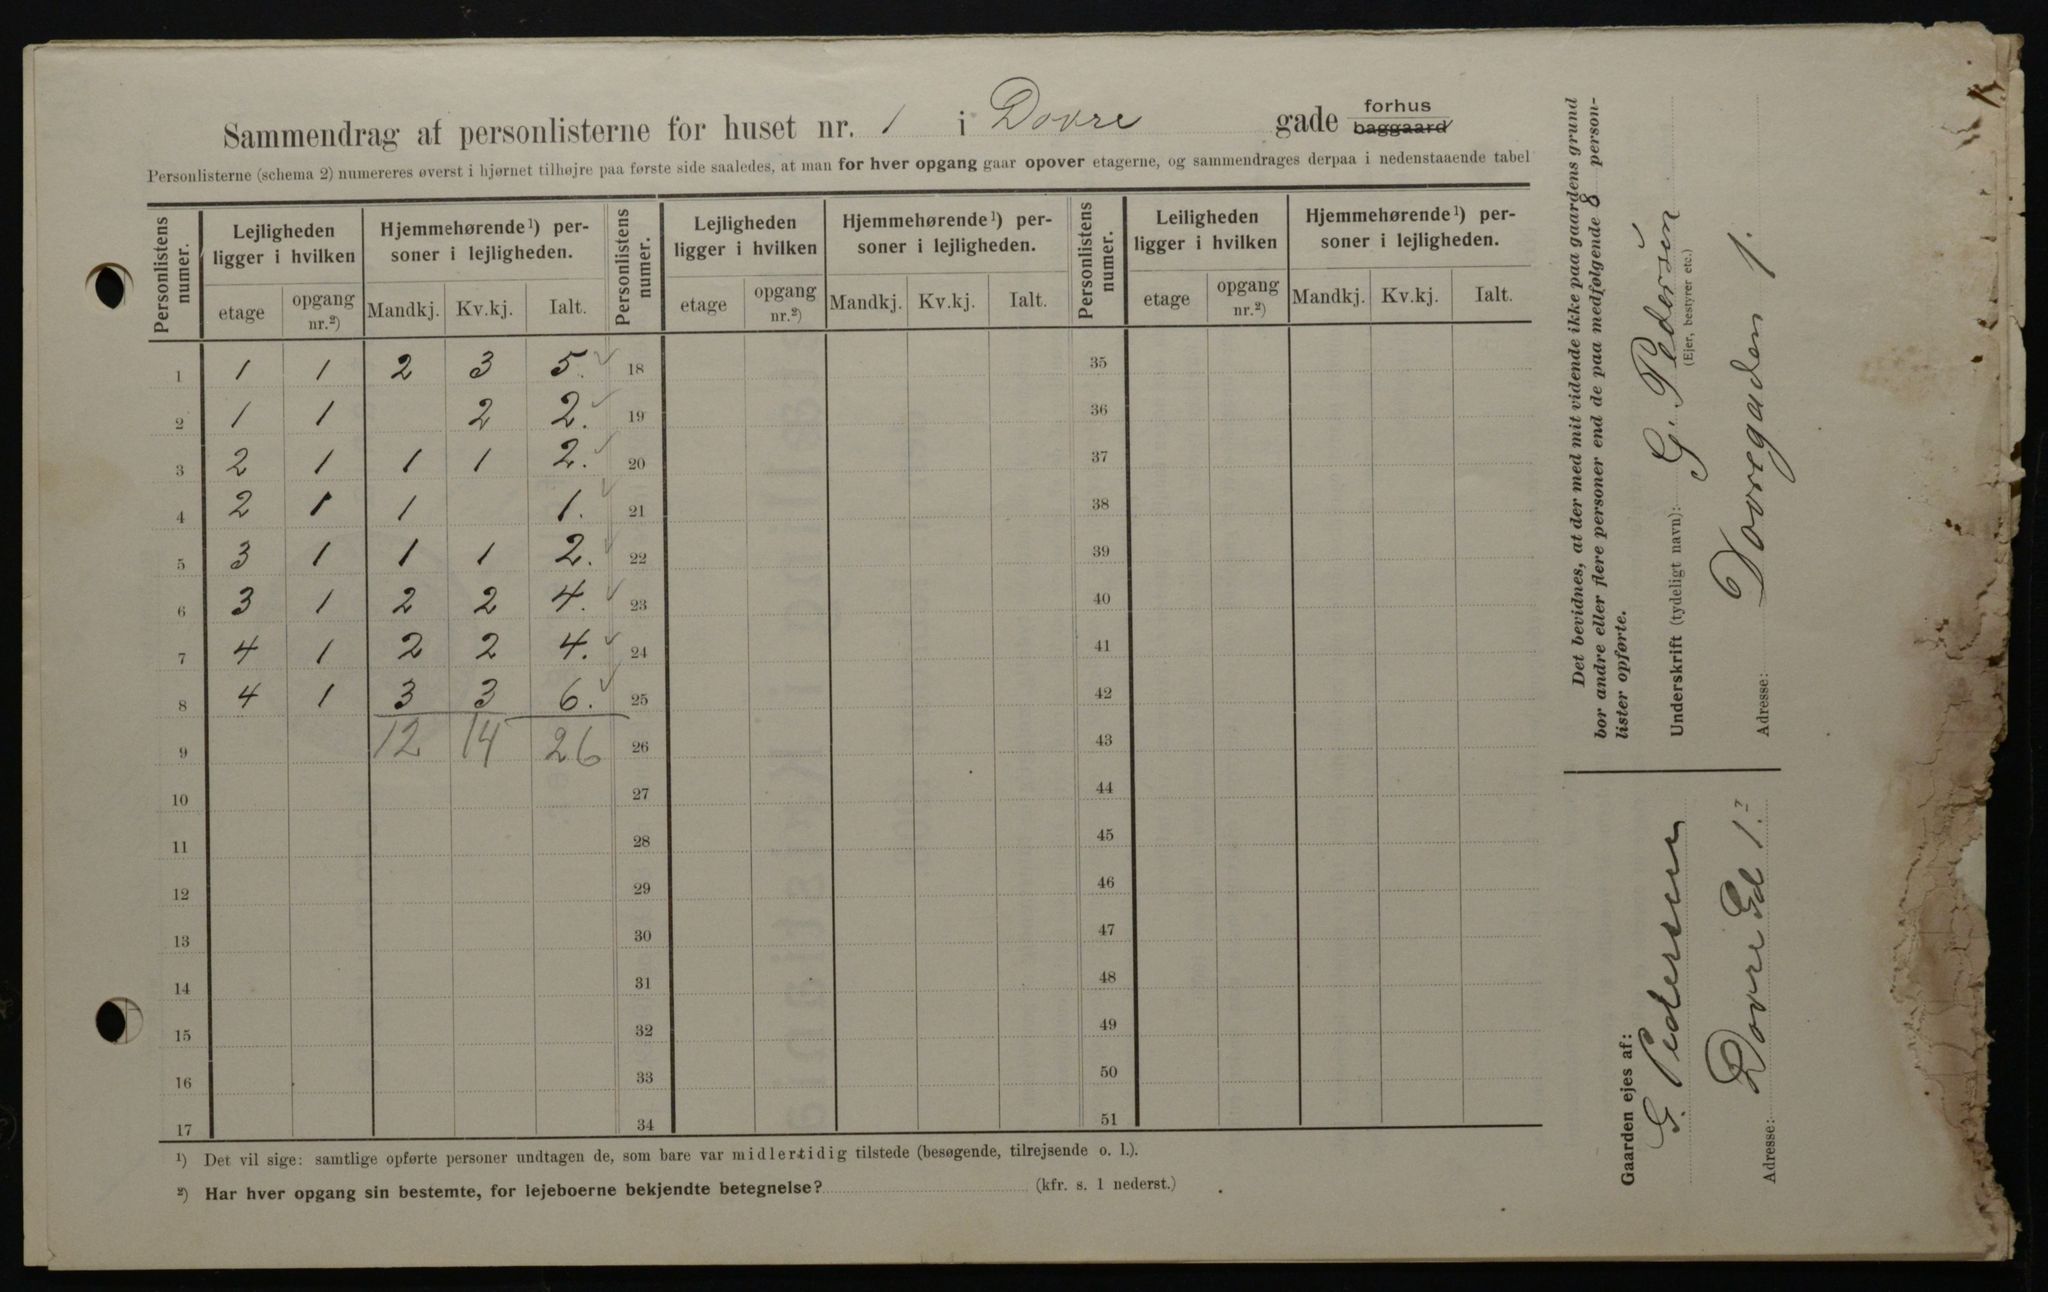 Sammendrag af personlisterne for huset nr. 1 i Dovre gade forhus baggaard
Personlisterne (schema 2) numereres øverst i hjørnet tilhøjre paa første side saaledes, at man for hver opgang gaar opover etagerne, og sammendrages derpaa i nedenstaaende tabel
Personlistens numer. Lejligheden ligger i hvilken Hjemmehørende¹) personer i lejligheden. Personlistens numer. Lejligheden ligger i hvilken Hjemmehørende¹) personer i lejligheden. Personlistens numer. Leiligheden ligger i hvilken Hjemmehørende¹) personer i lejligheden.
etage opgang nr.²) Mandkj. Kv.kj. Ialt. etage opgang nr.²) Mandkj. Kv.kj. Ialt. etage opgang nr.²) Mandkj. Kv.kj. Ialt.
1 1 1 2 3 5. ✓ 18 35
2 1 1 2 2. ✓ 19 36
3 2 1 1 1 2. ✓ 20 37
4 2 1 1 1. ✓ 21 38
5 3 1 1 1 2. ✓ 22 39
6 3 1 2 2 4. ✓ 23 40
7 4 1 2 2 4. ✓ 24 41
8 4 1 3 3 6. ✓ 25 42
9 12 14 26 26 43
10 27 44
11 28 45
12 29 46
13 30 47
14 31 48
15 32 49
16 33 50
17 34 51
¹) Det vil sige: samtlige opførte personer undtagen de, som bare var midlertidig tilstede (besøgende, tilrejsende o. l.).
²) Har hver opgang sin bestemte, for lejeboerne bekjendte betegnelse? (kfr. s. 1 nederst.)
Det bevidnes, at der med mit vidende ikke paa gaardens grund
bor andre eller flere personer end de paa medfølgende 8 person-
lister opførte.
Underskrift (tydeligt navn): G. Pedersen
(Ejer, bestyrer etc.)
Adresse: Dovregaden 1.
Gaarden ejes af:
G. Pedersen
Adresse: Dovre Gd 1.